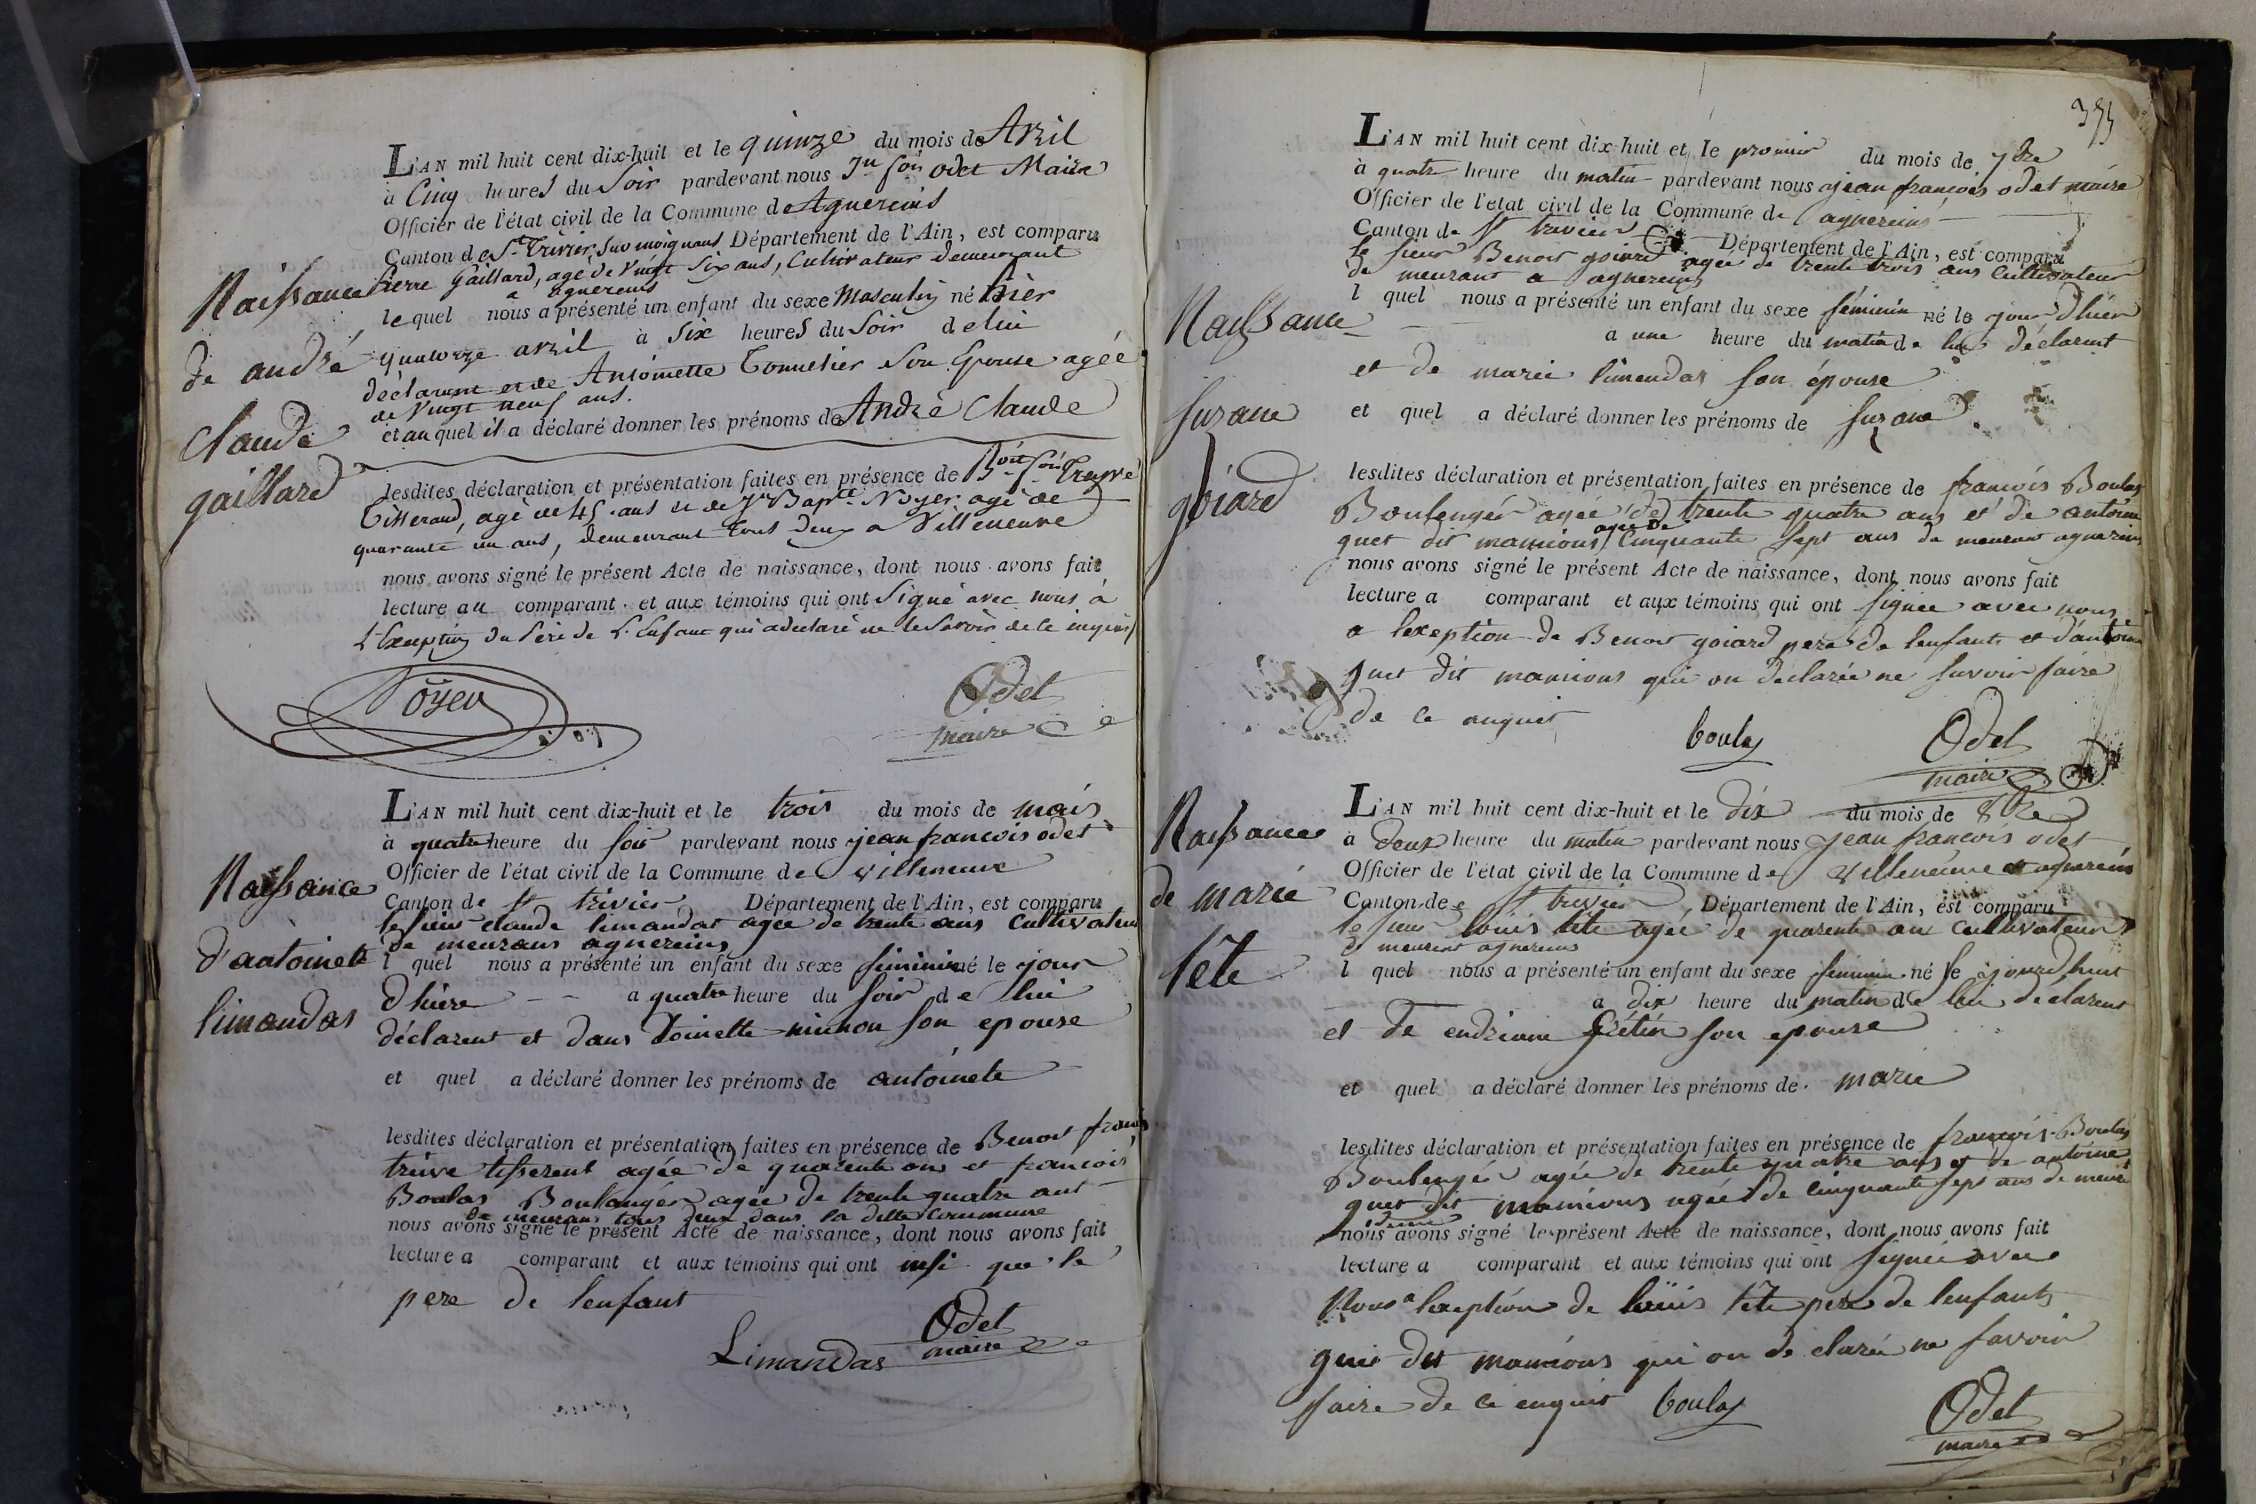 L'AN mil huit cent dix-huit et le quinze du mois de Avril
à Cinq heures du Soir pardevant nous Jn fois odet Maire
Officier de l'état civil de la Commune de Agnereins
Canton de St Trivier Sur moignans Département de l'Ain, est comparu
Pierre Gaillard, agé de Vingt Six ans, Cultivateur demeurant
a agnereins
lequel nous a présenté un enfant du sexe Masculin né hier
quatorze avril à Six heures du Soir de lui
déclarant et de Antoinette Tonnelier Son Epouse agée
de Vingt neuf ans.
et auquel il a déclaré donner les prénoms de André Claude
Naissance
de andré
Claude
gaillard
lesdites déclaration et présentation faites en présence de Boit fois Treyve
Tisserand, agé de 45 ans et de Jn Bapte Noyer agé de
quarante un ans, demeurant tous deux a Villeneuve
nous avons signé le présent Acte de naissance, dont nous avons fait
lecture au comparant et aux témoins qui ont Signé avec nous à
L'Exception du Père de L'Enfant qui a declaré ne le Savoir de ce
Noyer
Odet
maire
L'AN mil huit cent dix-huit et le trois du mois de mais
à quatre heure du soir pardevant nous jean francois odet
Officier de l'état civil de la Commune de villeneuve
Canton de St trivier Département de l'Ain, est comparu
le sieur claude limandas agée de trente ans Cultivateur
de meurans agnereins
l quel nous a présenté un enfant du sexe feminin né le jour
d'hiere a quatre heure du soir de lui
déclarent et dans toinette minnon son epouse
et quel a déclaré donner les prénoms de antoinete
Naissance
d'antoinete
limandas
lesdites déclaration et présentation faites en présence de Benoit francois
treive tisserent agée de quarente ans et francois
Boulas Boulangér agée de trente quatre ans
de meurans tous deux dans la ditte Commune
nous avons signé le présent Acte de naissance, dont nous avons fait
lecture a comparant et aux témoins qui ont insi que le
pere de lenfant
Limandas
Odet
maire
L'AN mil huit cent dix-huit et le premier du mois de 7bre
à quatre heure du matin pardevant nous jean françois odet maire
Officier de l'état civil de la Commune de agnereins
Canton de St trivier Département de l'Ain, est comparu
le sieur Benoit goiard agée de trente trois ans Cultivateur
de meurant a agnereins
l quel nous a présenté un enfant du sexe féminin né le jour d'hier
a une heure du matin de lui déclarent
et de marie limandas son épouse
et quel a déclaré donner les prénoms de suzane
Naissance
suzane
goiard
lesdites déclaration et présentation faites en présence de francois Boulas
Boulengér agée de trente quatre ans et de antoine
guet dit manious agée de Cinquante sept ans de meurant agnereins
nous avons signé le présent Acte de naissance, dont nous avons fait
lecture a comparant et aux témoins qui ont signée avec nous
a lexeption de Benoit goiard pere de lenfants et d'antoine
guet dit manious qui on declarée ne savoir faire
de ce anquit
boulas
Odet
maire
L'AN mil huit cent dix-huit et le dix du mois de 8bre
à deux heure du matin pardevant nous jean francois odet
Officier de l'état civil de la Commune de Villeneuve et agnereins
Canton de St trivier Département de l'Ain, est comparu
le sieur louis tête agée de quarente an Cultivateur
de meurent agnereins
l quel nous a présenté un enfant du sexe feminin né le ajourdhuit
a dix heure du matin de lui déclarent
et de endrienne Crétin son epouse
et quel a déclaré donner les prénoms de marie
Naissance
de marie
tête
lesdites déclaration et présentation faites en présence de francois Boulas
Boulengér agée de trente quatre ans et de antoine
guet dit manious agée de cinquante sept ans de meure
nous avons signé le présent Acte de naissance, dont nous avons fait
lecture a comparant et aux témoins qui ont signée avec
Nous a lexeption de louis tête pere de lenfants
guet dit manious qui on de clarée ne savoir
faire de ce enquit
boulas
Odet
maire